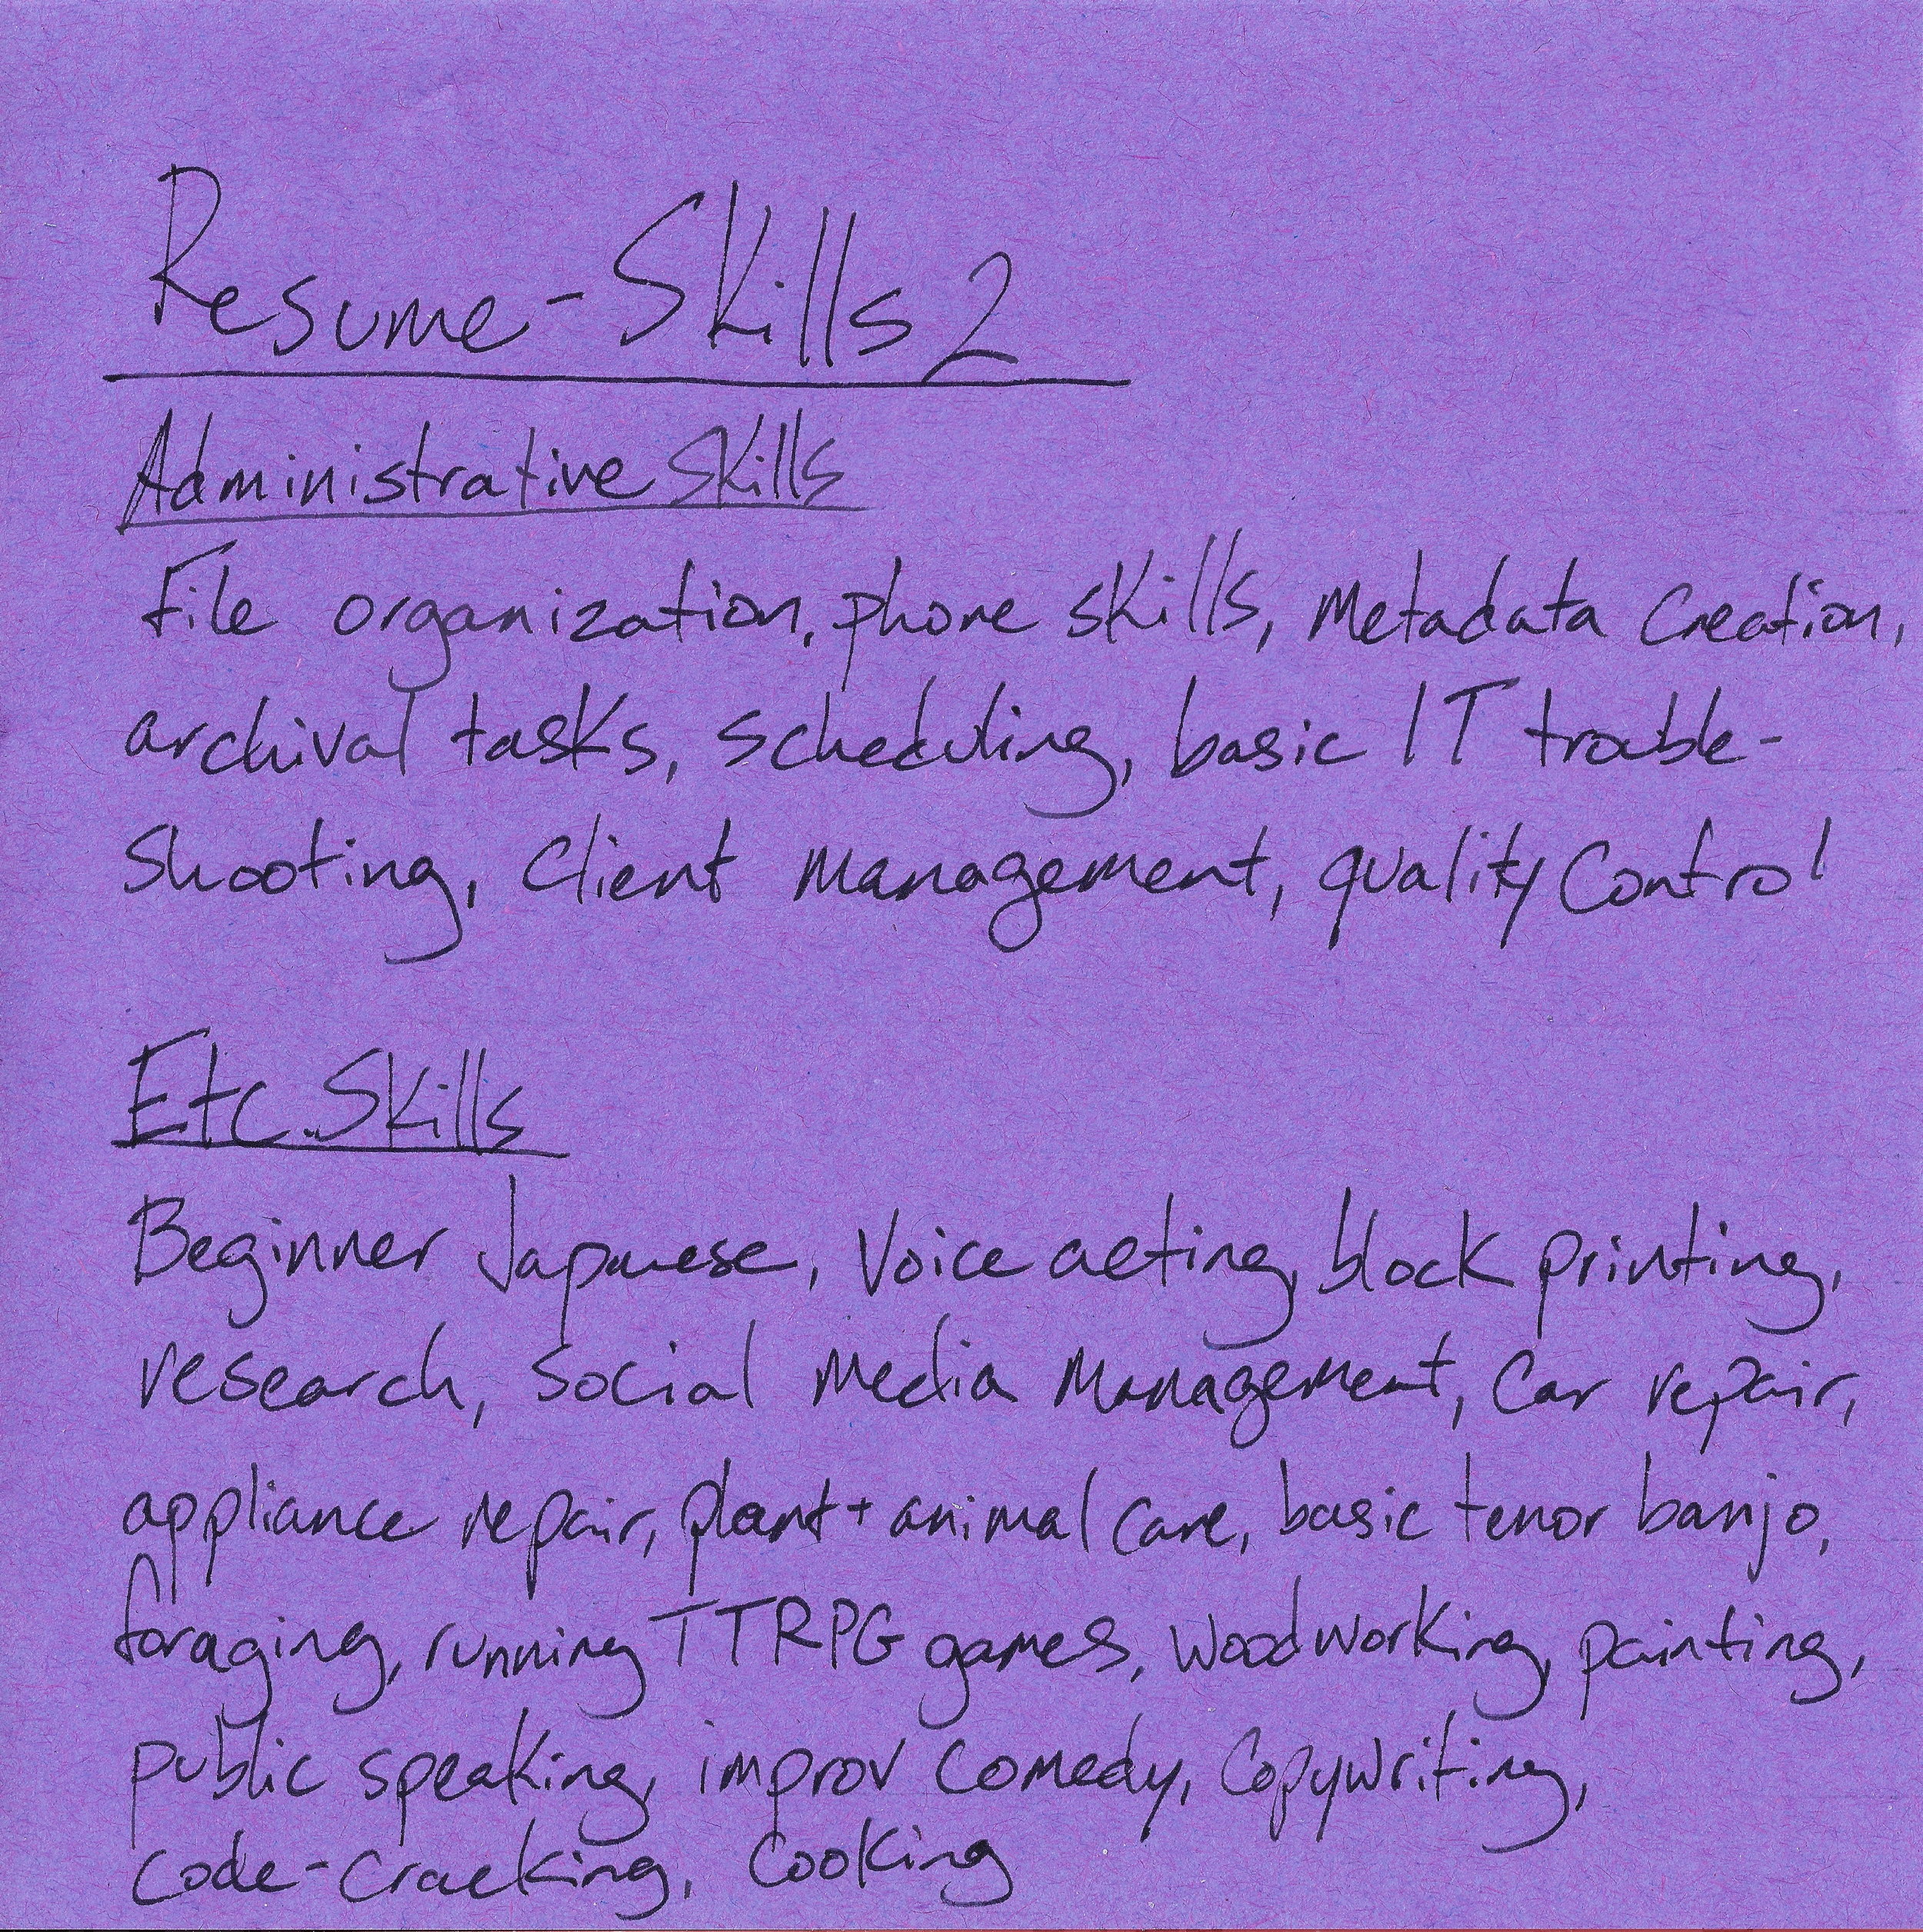 Resume-Skills 2
Administrative Skills
File organization, phone skills, Metadata Creation,
archival tasks, scheduling, basic IT trouble-
shooting, Client management, quality Control
Etc. Skills
Beginner Japanese, Voice acting, block printing,
research, social media management, Car repair,
appliance repair, plant + animal care, basic tenor banjo,
foraging, running TTRPG games, woodworking, painting,
public speaking, improv comedy, Copywriting,
Code-cracking, Cooking